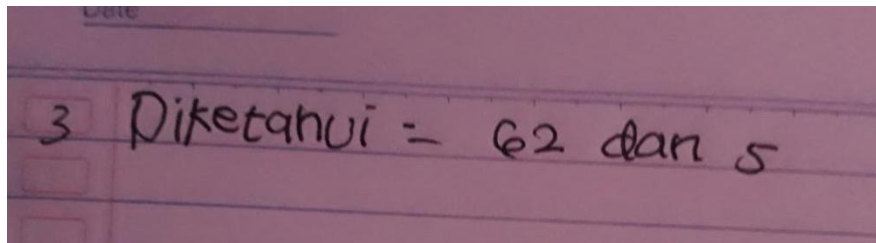 Date
3 Diketahui = 62 dan 5